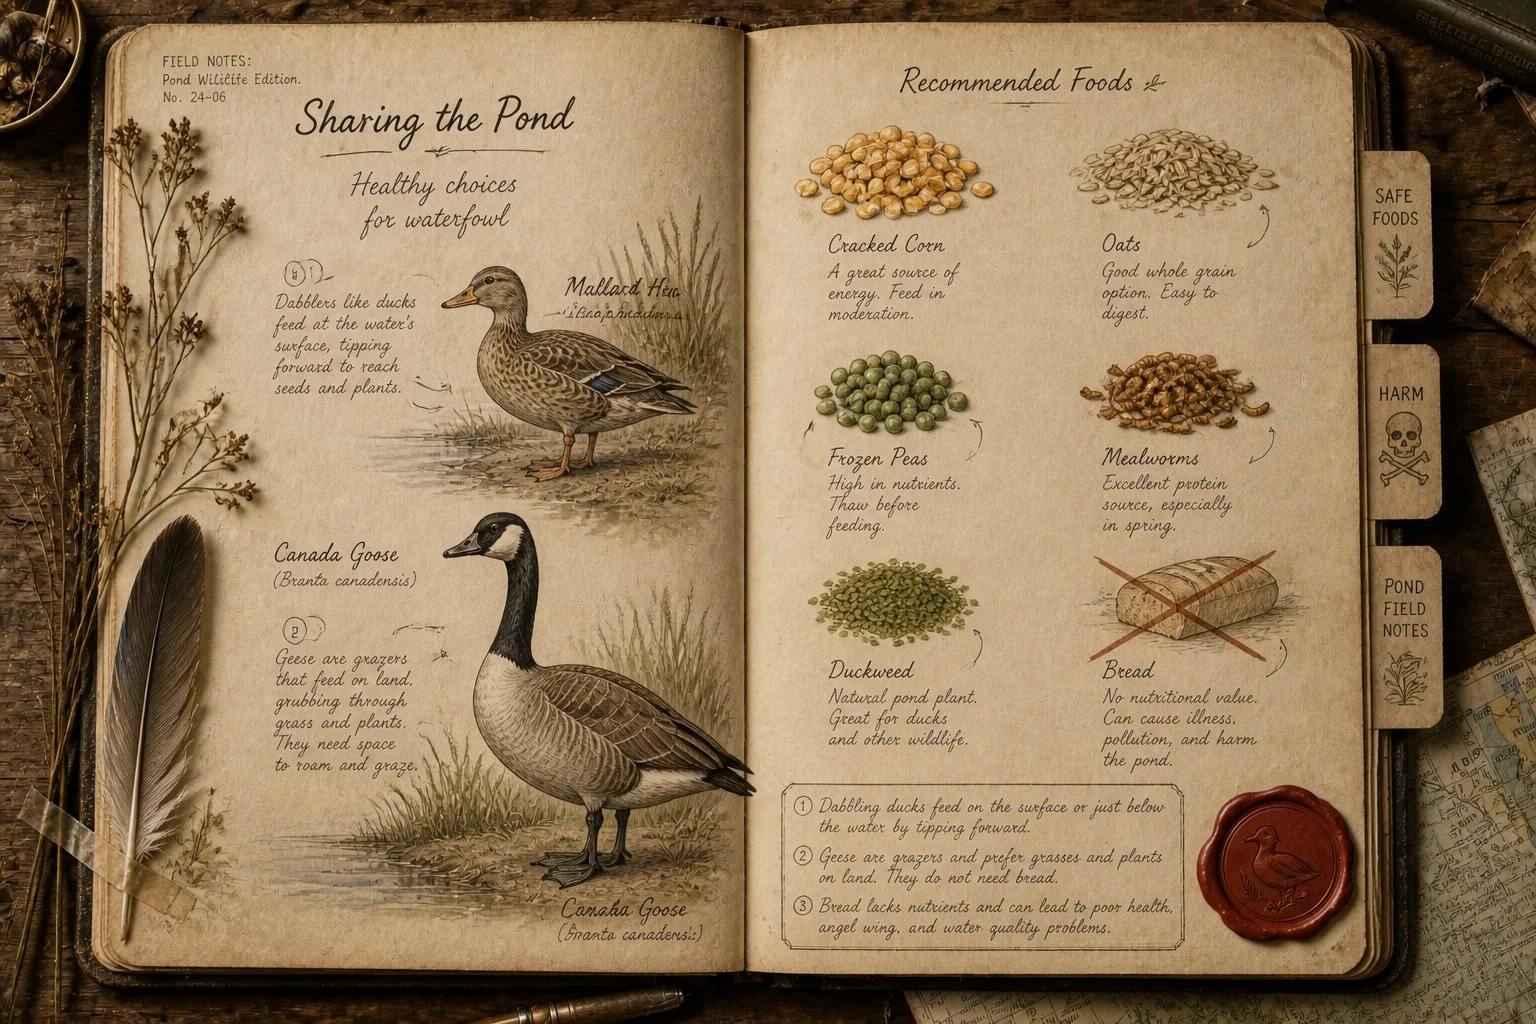 FIELD NOTES:
Pond Wililife Edition.
No. 24-06
Sharing the Pond
Healthy choices
for waterfowl
1
Dabblers like ducks
feed at the water's
surface, tipping
forward to reach
seeds and plants.
Mallard
Canada Goose
(Branta canadensis)
2
Geese are grazers
that feed on land,
grubbing through
grass and plants.
They need space
to roam and graze.
Goose
Recommended Foods
Cracked Corn
A great source of
energy. Feed in
moderation.
Oats
Good whole grain
option. Easy to
digest.
Frozen Peas
High in nutrients.
Thaw before
feeding.
Mealworms
Excellent protein
source, especially
in spring.
Duckweed
Natural pond plant.
Great for ducks
and other wildlife.
Bread
No nutritional value.
Can cause illness,
pollution, and harm
the pond.
1 Dabbling ducks feed on the surface or just below
the water by tipping forward.
2 Geese are grazers and prefer grasses and plants
on land. They do not need bread.
3 Bread lacks nutrients and can lead to poor health,
angel wing, and water quality problems.
SAFE
FOODS
HARM
POND
FIELD
NOTES